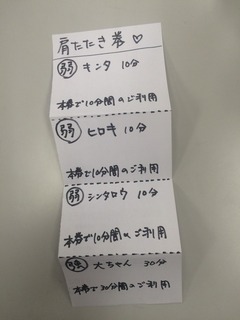 肩たたき券♡
弱 キンタ 10分
本券で10分間のご利用
弱 ヒロキ 10分
本券で10分間のご利用
弱 シンタロウ 10分
本券で10分間のご利用
強 大ちゃん 30分
本券で30分間のご利用